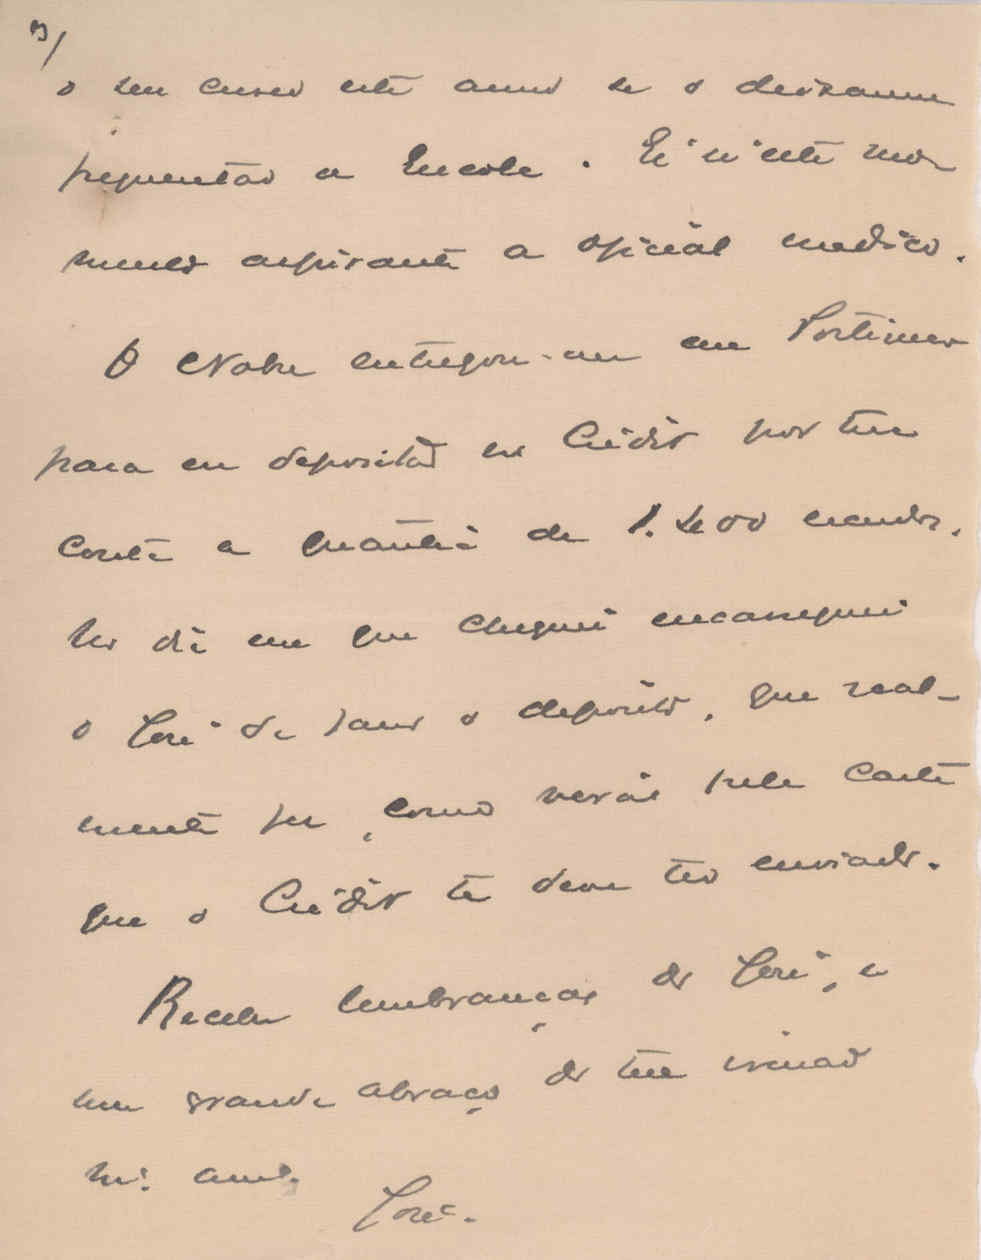 3/
o seu curso este anno se o deixarem
frequentar a Escola. Ei-
numero aspirante a oficial medico.
O Nobre entregou-me em Portimão
para eu depositar no Crédito por tua
conta a quantia de 1.400 escudos.
No dia em que cheguei encarreguei
o José de fazer o deposito, que real-
mente fez, como verás pela carta
que o Crédito te deve ter enviado.
Recebe lembranças do José, e
um grande abraço do teu irmão
mt. amº.
José.